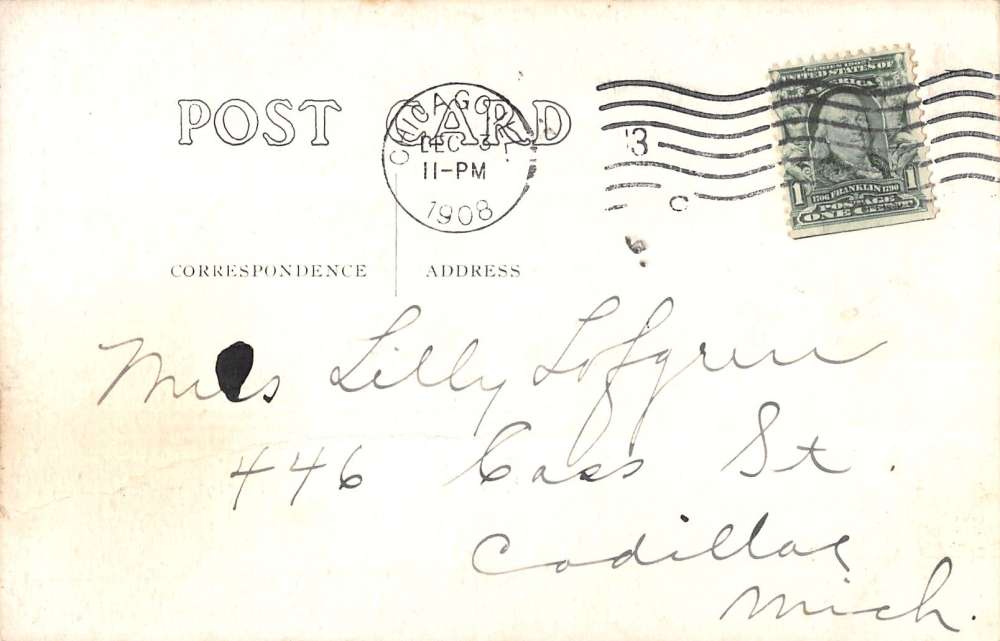 POST CARD
CHICAGO, ILL.
DEC 3
11-PM
1908
3
C
SERIES 1902
UNITED STATES OF
AMERICA
1 1706 FRANKLIN 1790 1
POSTAGE
ONE CENT
CORRESPONDENCE
ADDRESS
Miss Lilly Lofgren
446 Cass St.
Cadillac
Mich.